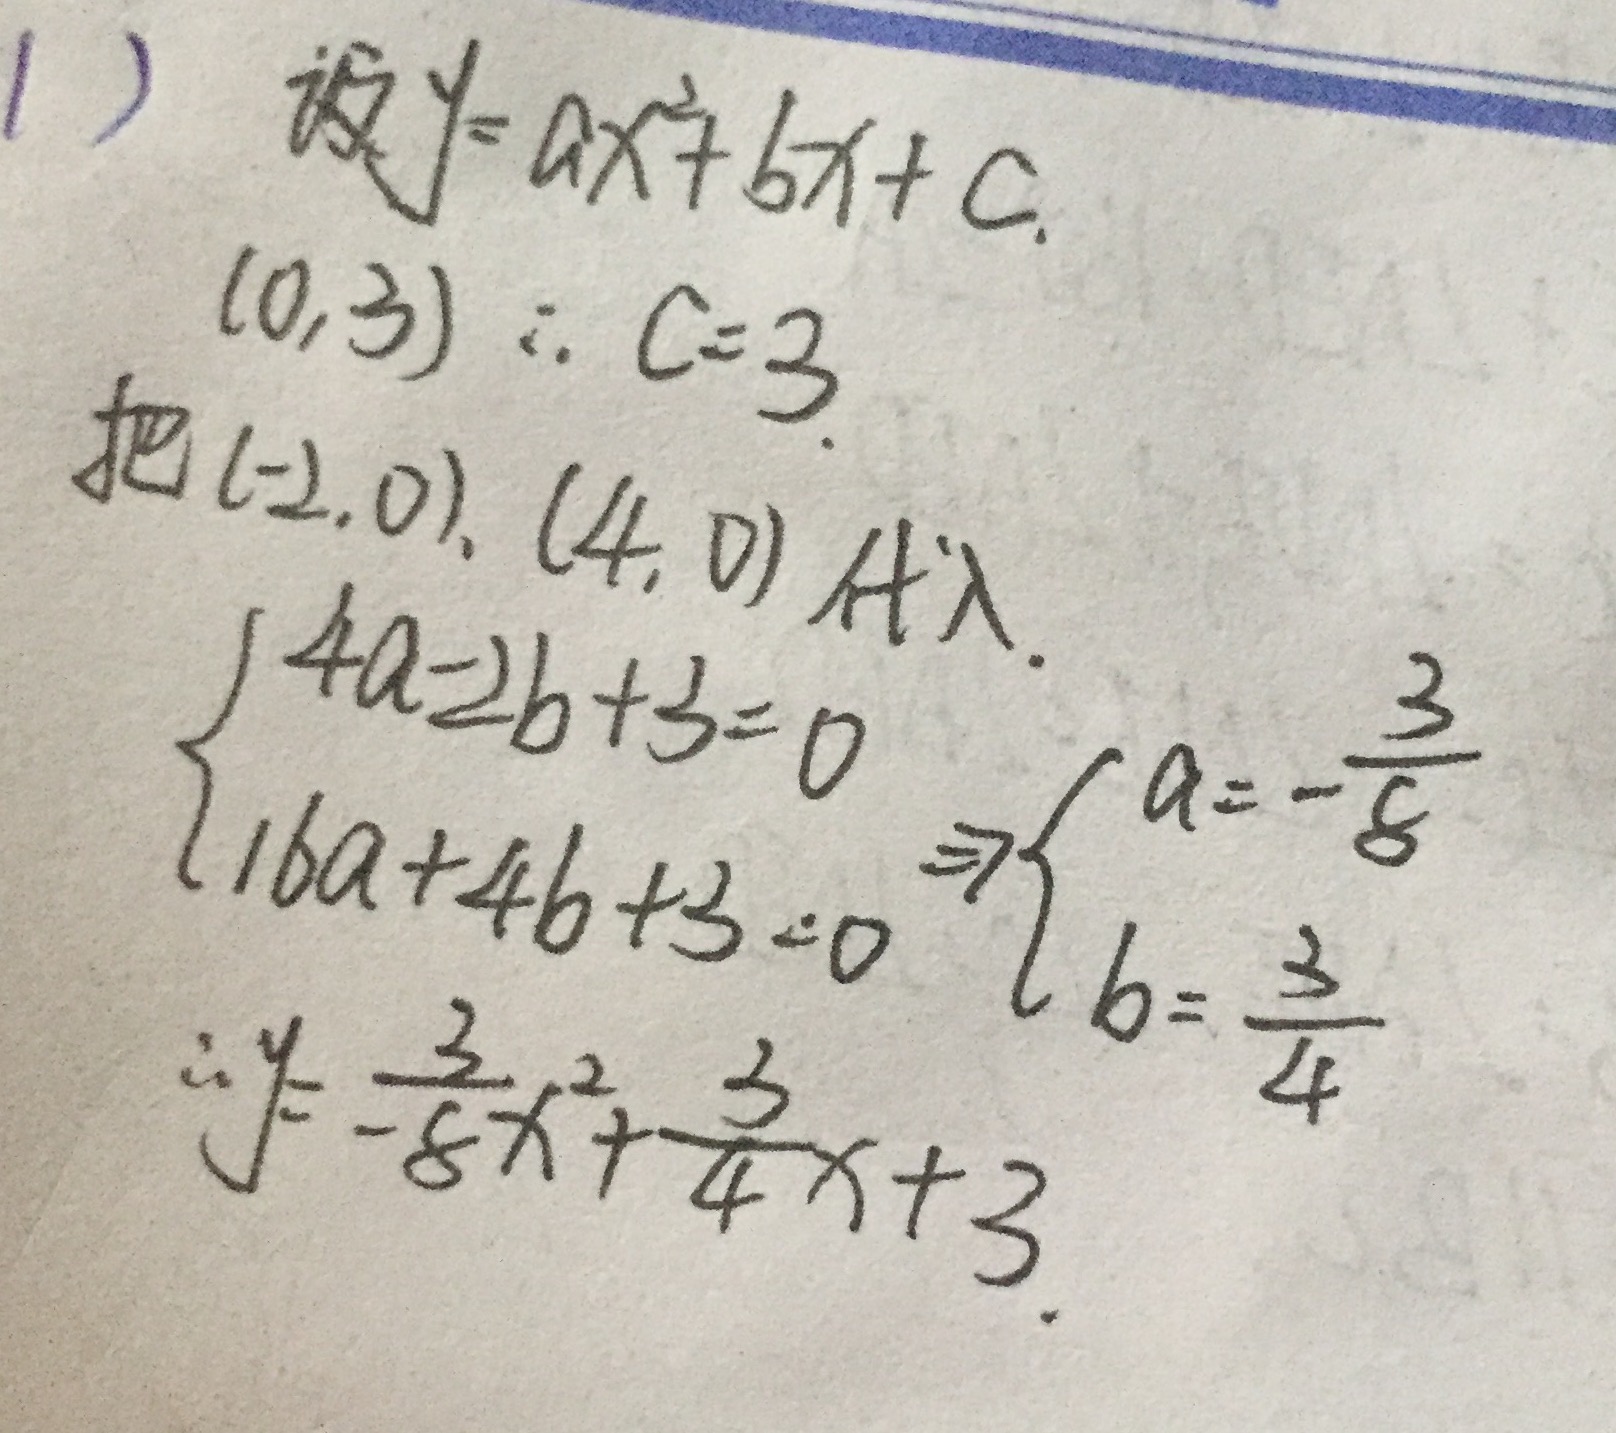 1) 设y=ax²+bx+c.
(0,3) ∴ C=3.
把(-2,0)、(4,0)代入.
{4a-2b+3=0
{16a+4b+3=0 ⇒ {a=-3/8
{b=3/4
∴y=3/-8x²+3/4x+3.